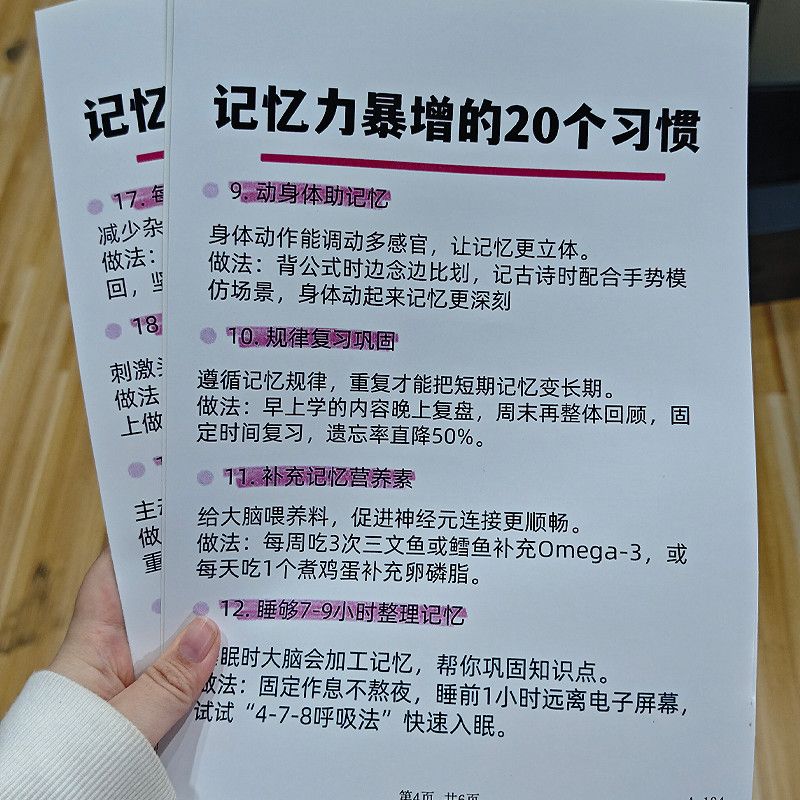 记忆力暴增的20个习惯
9. 动身体助记忆
身体动作能调动多感官，让记忆更立体。
做法：背公式时边念边比划，记古诗时配合手势模
仿场景，身体动起来记忆更深刻
10. 规律复习巩固
遵循记忆规律，重复才能把短期记忆变长期。
做法：早上学的内容晚上复盘，周末再整体回顾，固
定时间复习，遗忘率直降50%。
11. 补充记忆营养素
给大脑喂养料，促进神经元连接更顺畅。
做法：每周吃3次三文鱼或鳕鱼补充Omega-3，或
每天吃1个煮鸡蛋补充卵磷脂。
12. 睡够7-9小时整理记忆
眠时大脑会加工记忆，帮你巩固知识点。
做法：固定作息不熬夜，睡前1小时远离电子屏幕，
试试“4-7-8呼吸法”快速入眠。
第4页 共6页
记忆
17. 每
减少杂
做法：
回，坚
18
刺激
做法
上做
主动
做
重